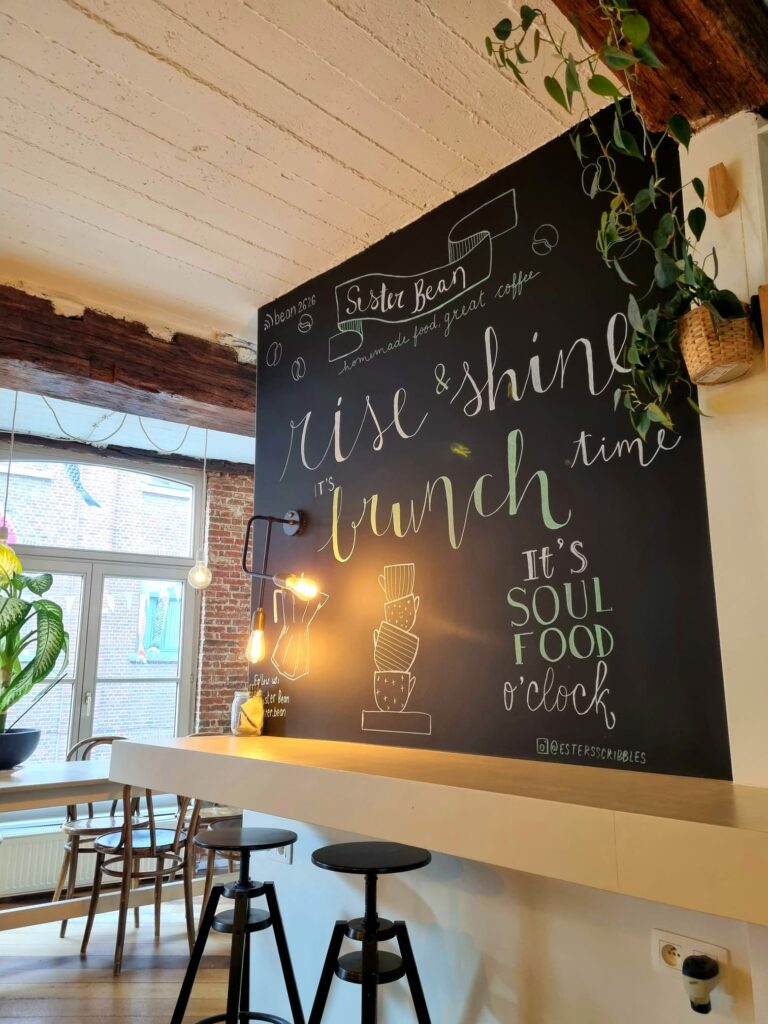 bean2626
Sister Bean
homemade food, great coffee
rise & shine
IT'S brunch time
IT'S
SOUL
FOOD
o'clock
Follow us
Sister Bean
@ESTERSSCRIBBLES